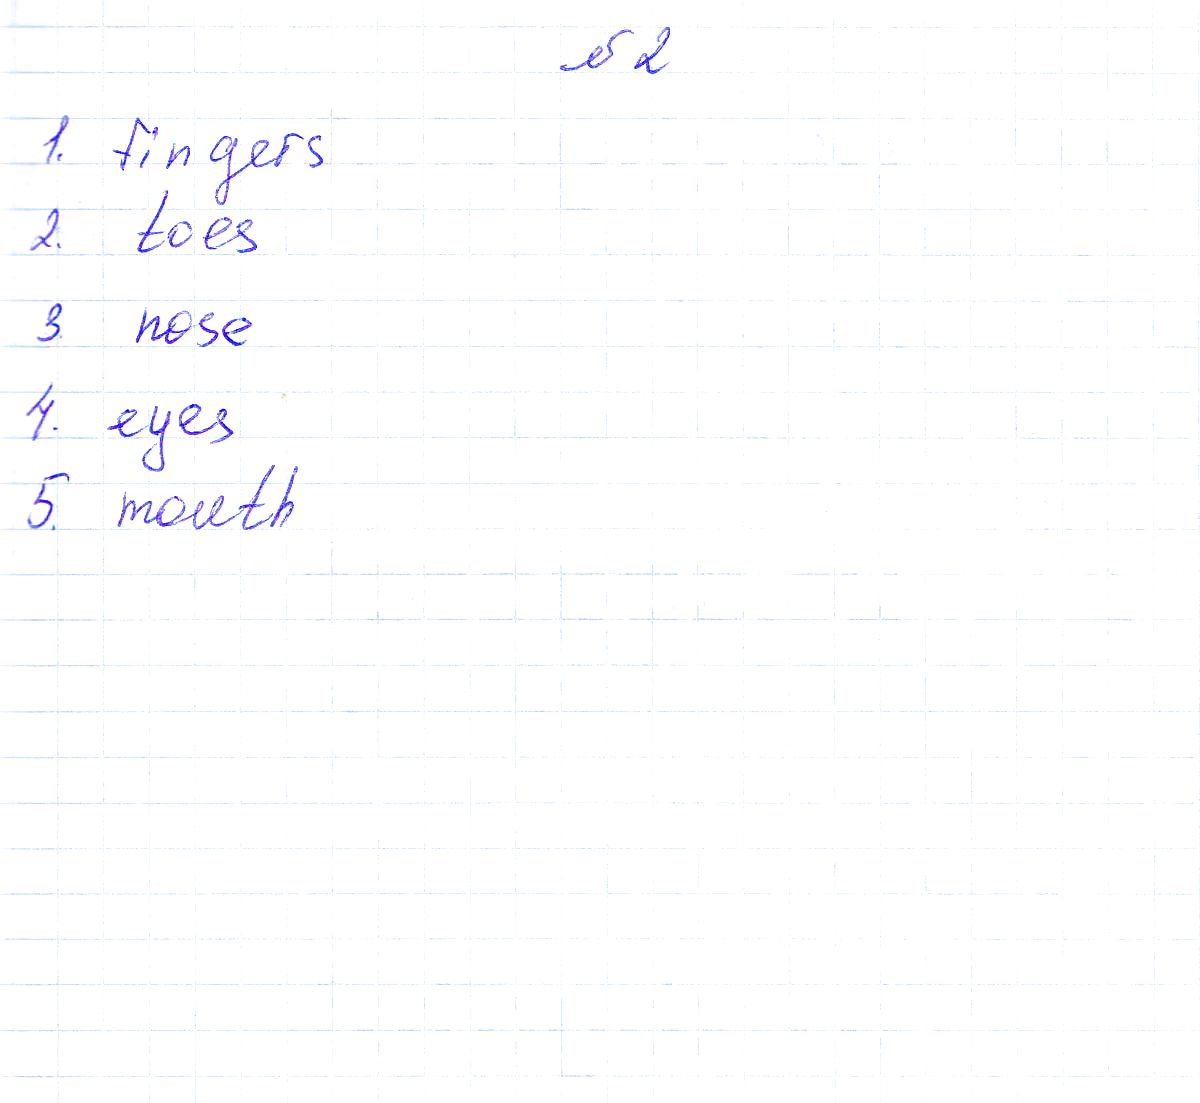 № 2
1. fingers
2. toes
3. nose
4. eyes
5. mouth